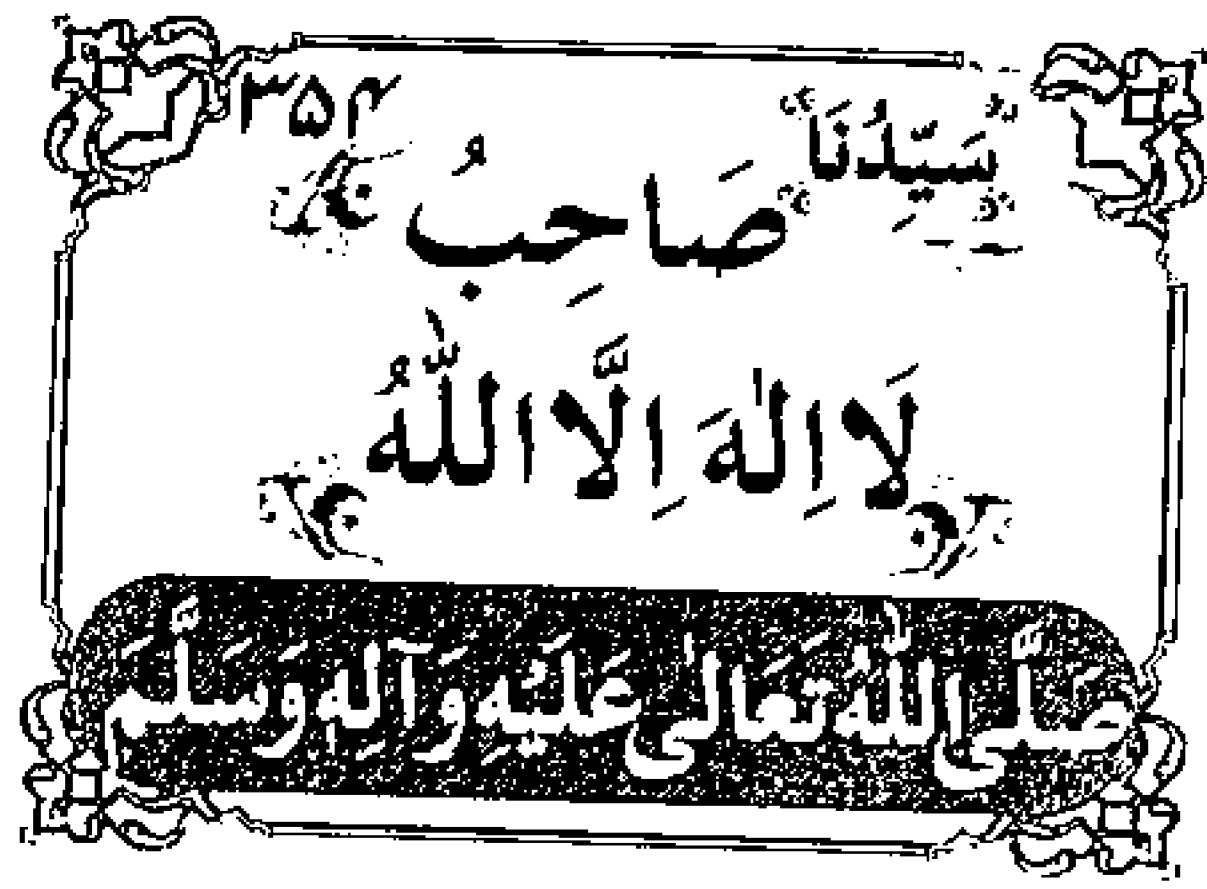 سَيِّدُنَا ۳۵۴
صَاحِبُ
لَا اِلٰهَ اِلَّا اللّٰهُ
صَلَّى اللّٰهُ تَعَالٰى عَلَيْهِ وَآلِهِ وَسَلَّمَ